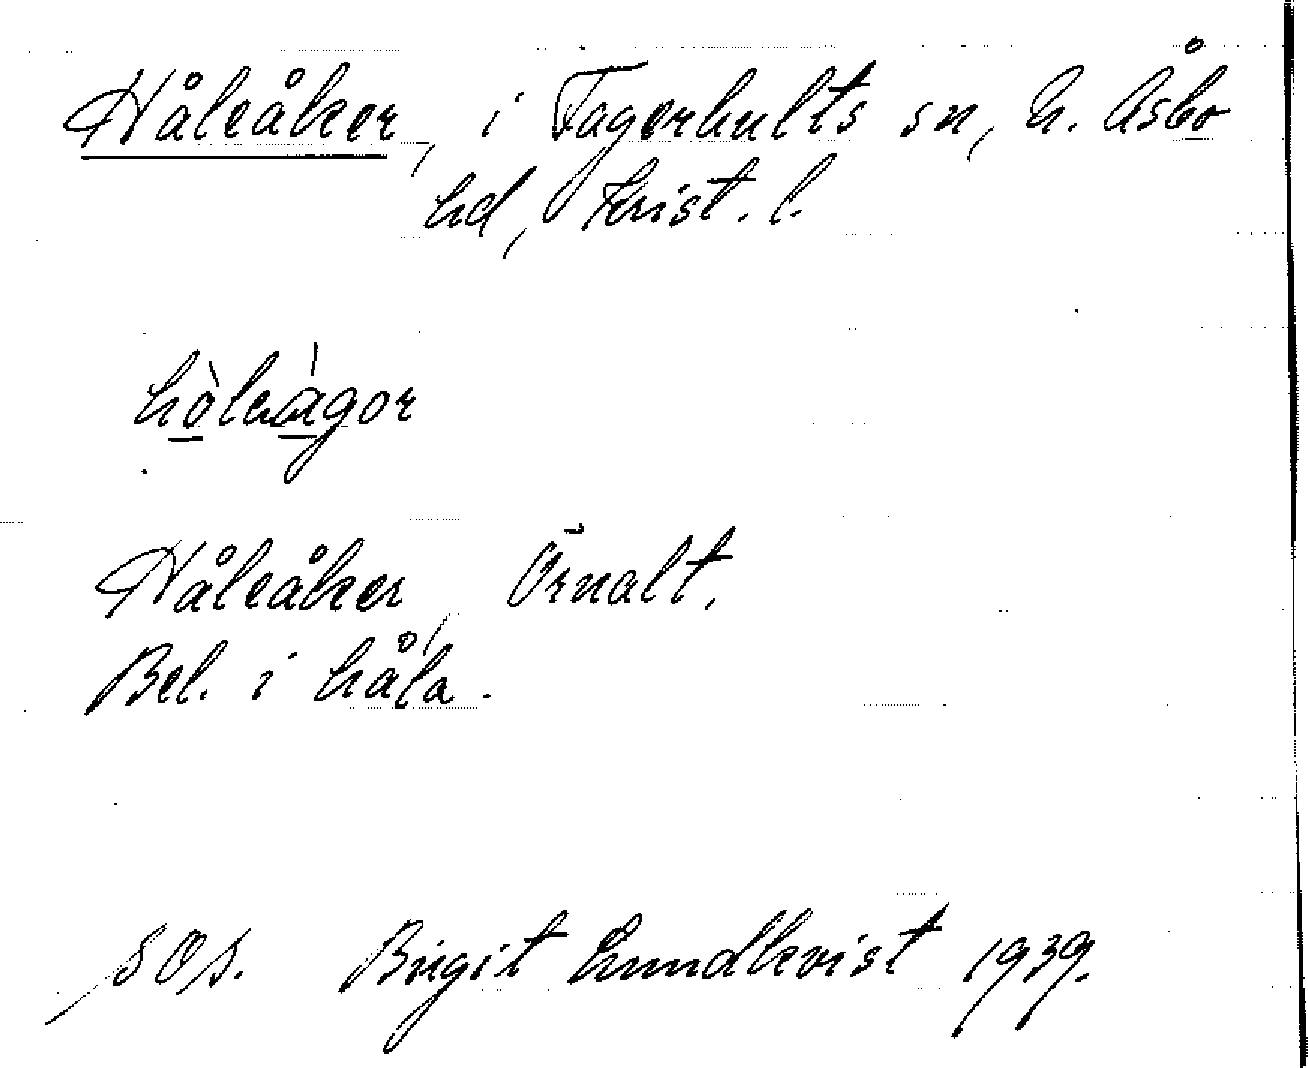 Håleåker, i Fagerhults sn, N. Åsbo
hd, Krist. l.
hòlɘàgor
Håleåker, Örnalt.
Bel. i håla.
SOS. Birgit Lundkvist 1939.